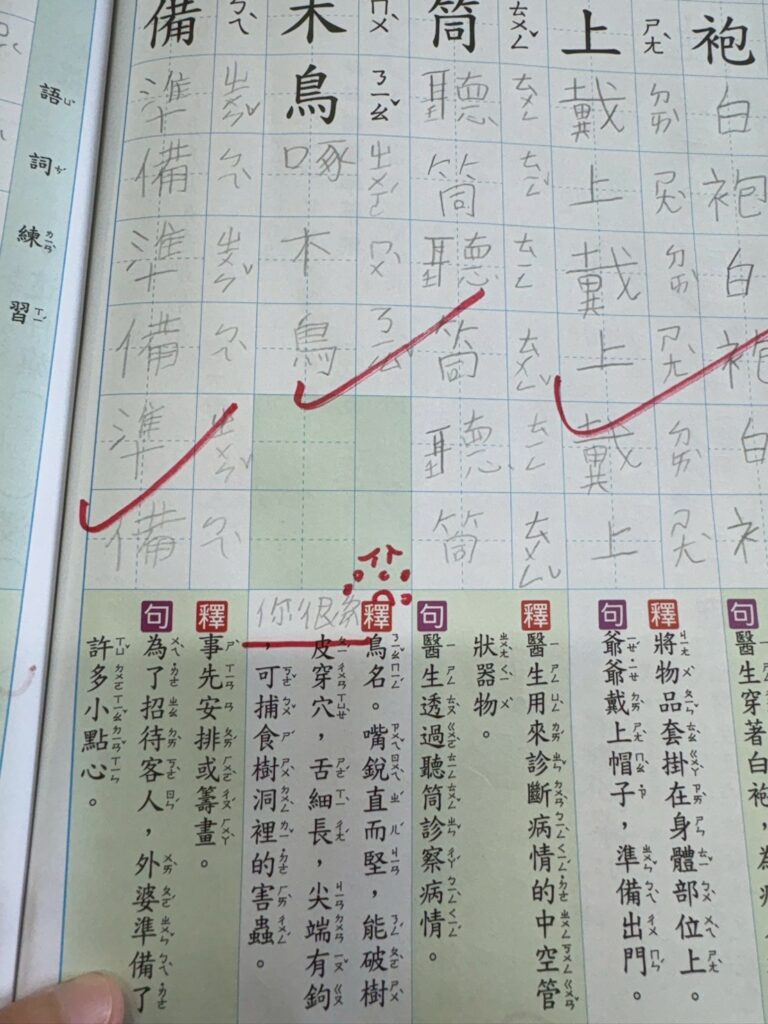 袍白袍白袍白
上戴上戴上戴上
筒聽筒聽筒聽筒
木鳥啄木鳥
ㄇㄨˋㄋㄧㄠˇㄓㄨㄛˊㄇㄨˋㄋㄧㄠˇ
備準備準備準備
ㄅㄟˋㄓㄨㄣˇㄅㄟˋㄓㄨㄣˇㄅㄟˋㄓㄨㄣˇㄅㄟˋ
語詞練習
句
醫生穿著白袍，為病
釋
將物品套掛在身體部位上。
句
爺爺戴上帽子，準備出門。
釋
醫生用來診斷病情的中空管
狀器物。
句
醫生透過聽筒診察病情。
釋
鳥名。嘴銳直而堅，能破樹
皮穿穴，舌細長，尖端有鉤
，可捕食樹洞裡的害蟲。
你很
釋
事先安排或籌畫。
句
為了招待客人，外婆準備了
許多小點心。